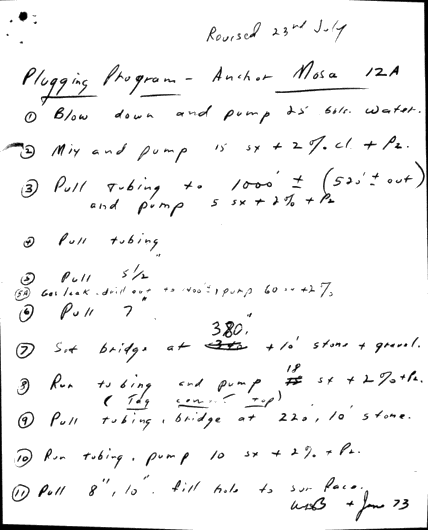 Revised 23rd July
Plugging Program - Anchor Mosa 12A
① Blow down and pump 25 bbls. water.
② Mix and pump 15 sx + 2% cl + Pz.
③ Pull Tubing to 1000' ± (525' ± out)
and pump 5 sx + 2% + Pz
④ Pull tubing
⑤ Pull 5 1/2"
5A Gas leak. drill out to 1000' ±, pump 60 sx + 2%
⑥ Pull 7"
380'
⑦ Set bridge at + 10' stone + gravel.
18
⑧ Run tubing and pump sx + 2% + Pz.
( Tag cement top)
⑨ Pull tubing, bridge at 220, 10' stone.
⑩ Run tubing, pump 10 sx + 2% + Pz.
⑪ Pull 8", 10". fill hole to surface.
+ June 73